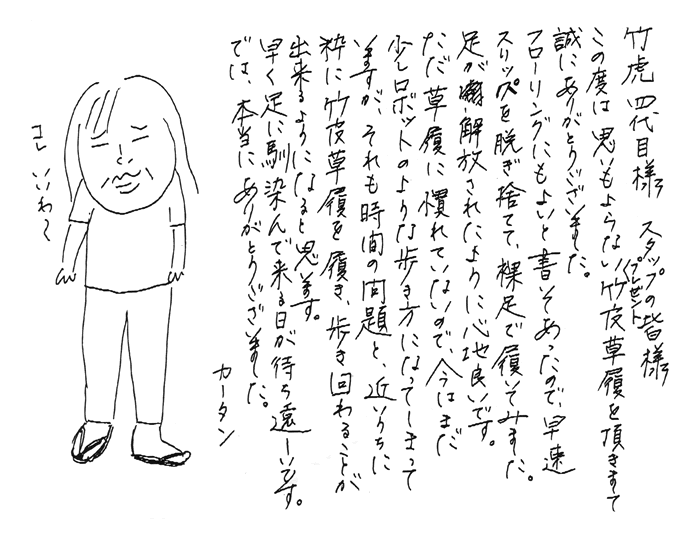 竹虎四代目様 スタップの皆様
この度は思いもよらない竹皮草履を頂きまして
プレゼント
誠にありがとうございました。
フローリングにもよいと書いてあったので、早速
スリッペを脱ぎ捨てて、裸足で履いてみました。
足が解放されたように心地良いです。
ただ草履に慣れていないので、今はまだ
少しロボットのような歩き方になってしまって
いますが、それも時間の問題と、近いうちに
粋に竹皮草履を履き、歩き回わることが
出来るようになると思います。
早く足に馴染んで来る日が待ち遠しいです。
では、本当にありがとうございました。
カータン
コレ いいわ〜